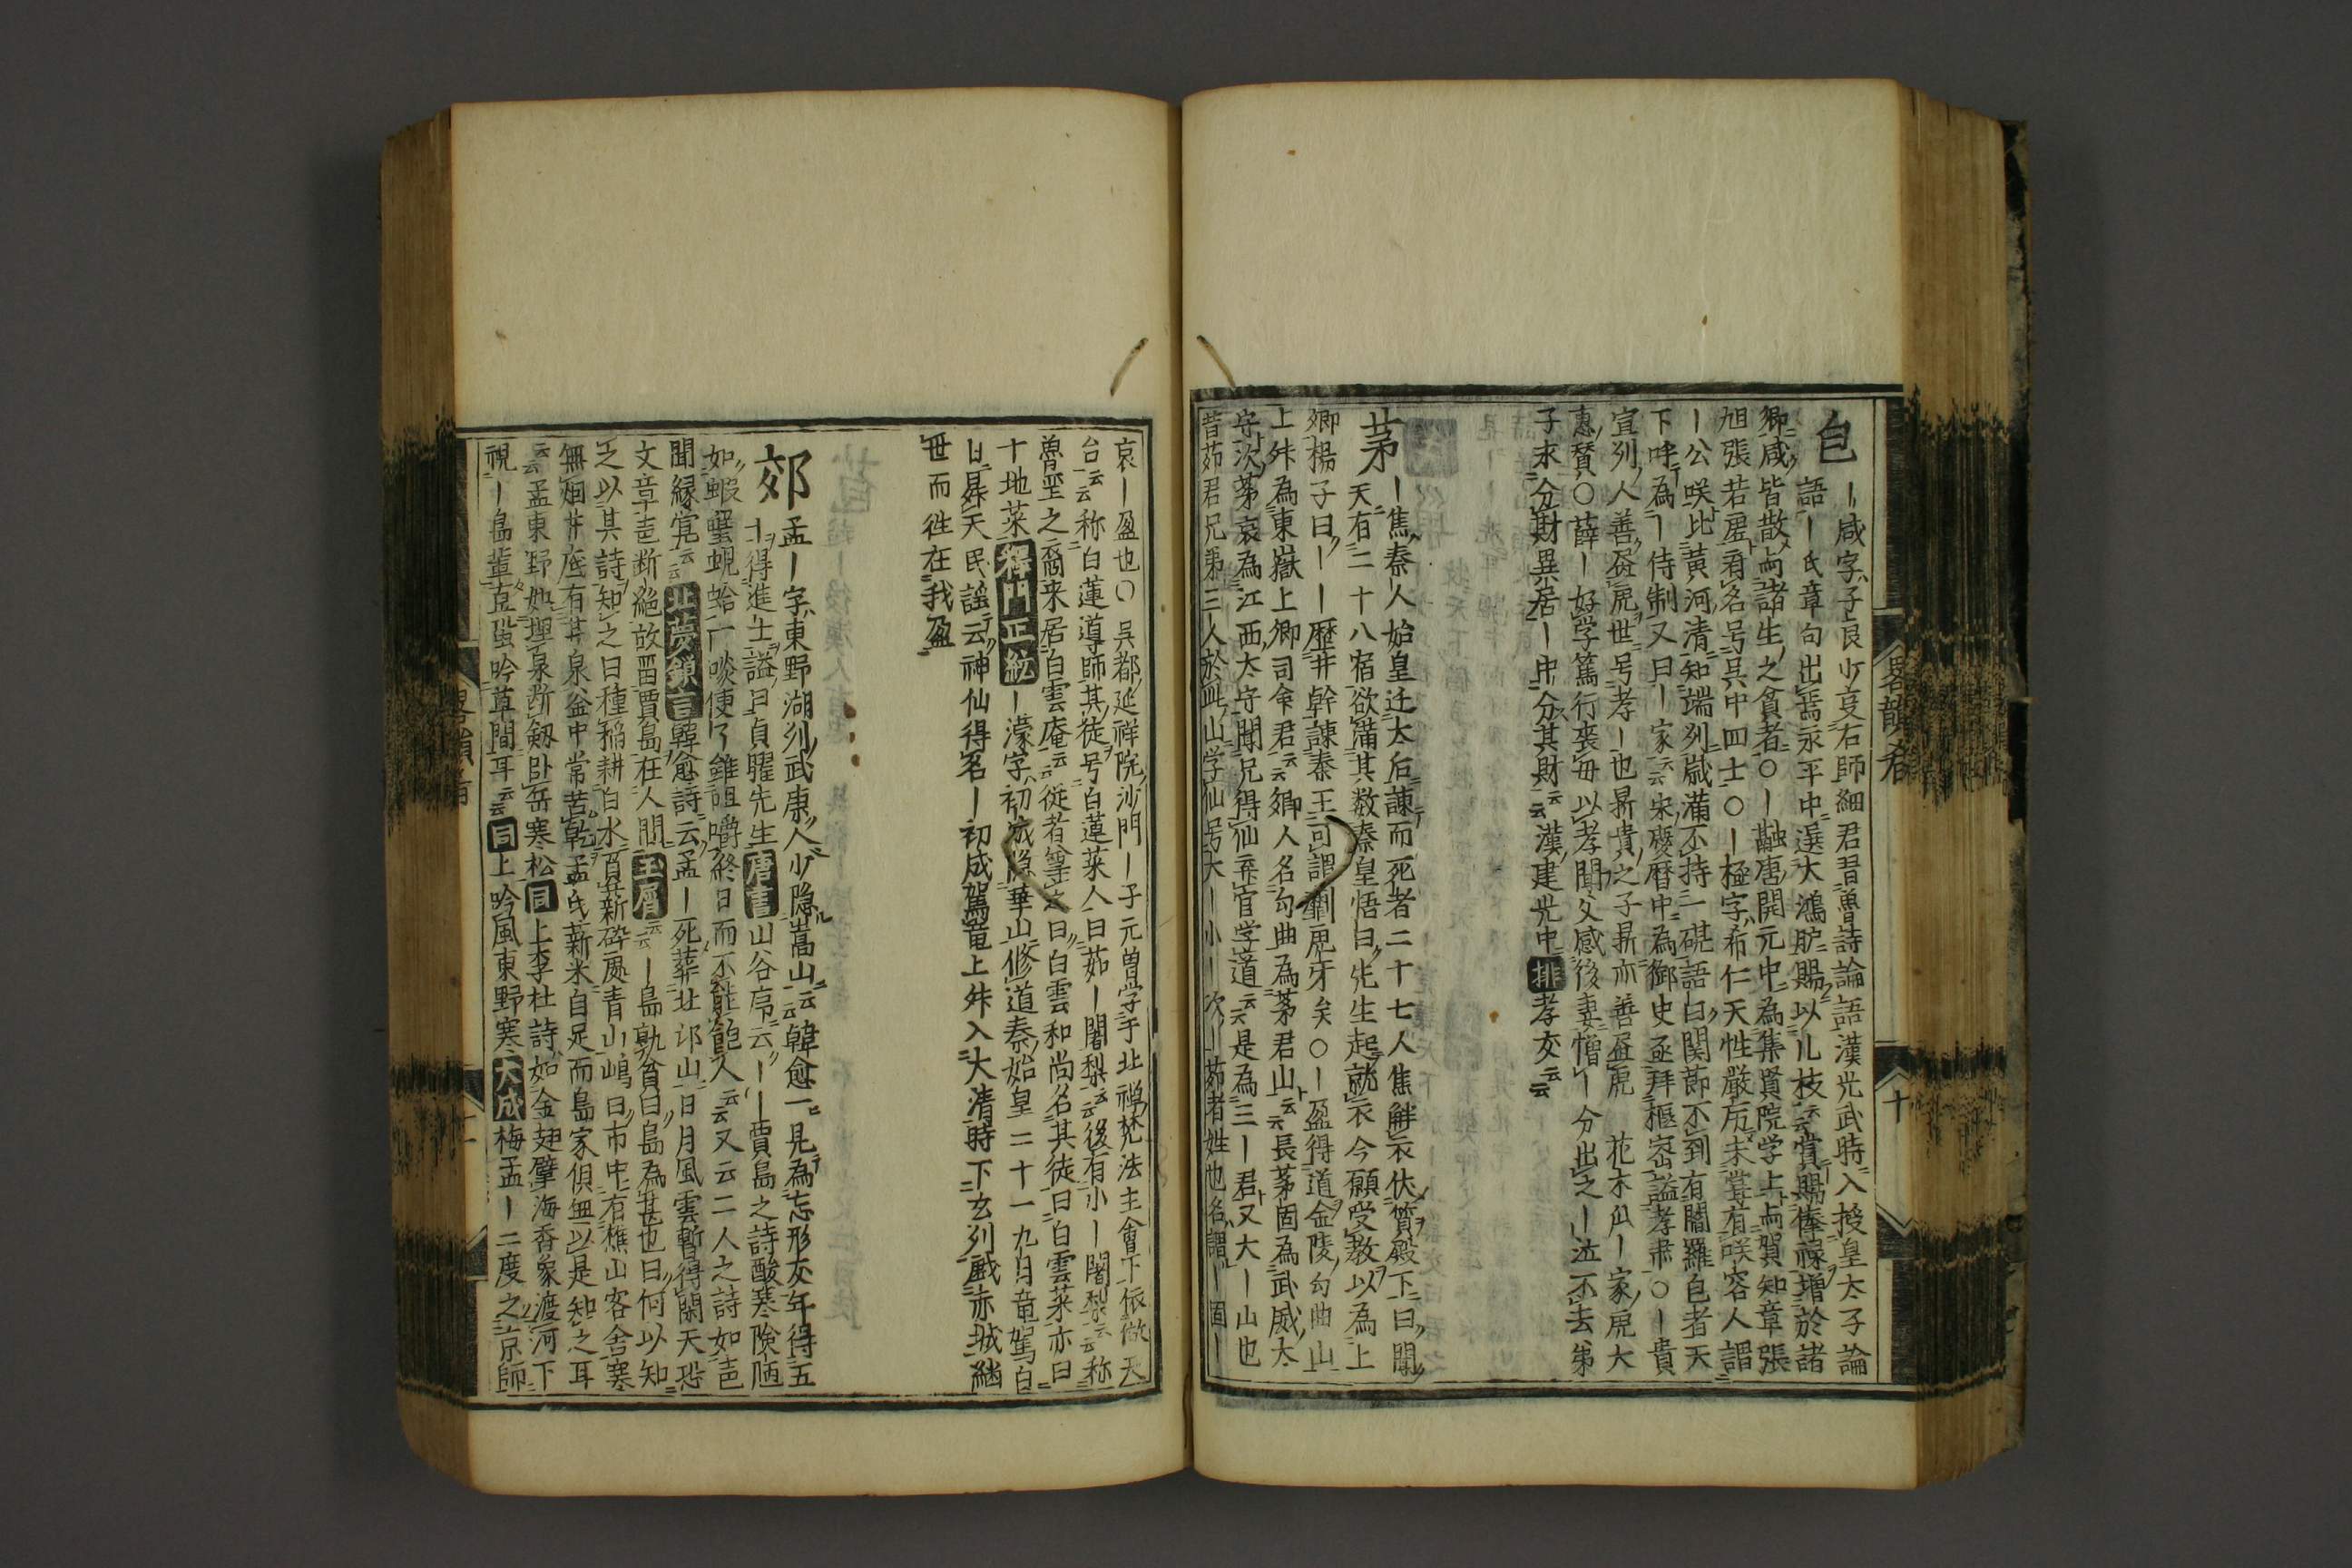 包
ー咸字子良少受右師細君習魯詩論語漢光武時入授皇太子論
語ー氏章句出焉永平中遷大鴻臚賜以几杖云云賞賜俸祿增於諸
卿咸皆散与諸生之貧者〇ー融唐開元中為集賢院学士与賀知章張
旭張若虚有名号呉中四士〇ー極字希仁天性厳厉未嘗有咲容人謂
ー公咲比黄河清知端州歳満不持一硯語曰関節不到有閻羅包者天
下呼為ー侍制又曰ー家云云宋慶暦中為御史丞拜樞密謚孝肅〇ー貴
宣州人善畫虎世号孝ー也鼎貴之子鼎亦善畫虎 花木瓜ー家虎大
惠賛〇薛ー好学篤行喪母以孝聞父感後妻憎ー分出之ー泣不去弟
子求分財異居ー中分其財云云漢建光中排孝友云云
茅
ー焦秦人始皇迁太后諫而死者二十七人焦解衣伏質殿下曰聞
天有二十八宿欲満其数秦皇悟曰先生起就衣今願受教以為上
卿楊子曰ーー歴井幹諫秦王可謂劘虎牙矣〇ー盈得道金陵句曲山
上舛為東嶽上卿司命君云云卿人名句曲為茅君山云云長茅固為武威太
守次茅衷為江西太守聞兄得仙弃官学道云云是為三ー君又大ー山也
昔茹君兄第三人於此山学仙号大ー小ー次ー茹者姓也名謂ー固ー
畧韻㕛
十
哀ー盈也〇呉都延祥院沙門ー子元曽学于北禅梵法主會下依倣天
台云云称白蓮導師其徒号白蓮菜人曰茹ー闍梨云云後有小ー闍梨云云称
魯聖之裔来居白雲庵云云從者等之曰白雲和尚名其徒曰白雲菜亦曰
十地菜釋門正統ー濛字初成隐華山修道秦始皇二十一九月竜駕白
日昇天民謡云神仙得名ー初成駕竜上舛入大清時下玄州戯赤城継
世而徃在我盈
郊
孟ー字東野湖州武康人少隐嵩山云云韓愈一見為忘形交年得五
十得進士謚曰貞曜先生唐書山谷序云ーー賈島之詩酸寒険陋
如蝦蟹蜆蛤一啖便了雖咀嚼終日而不能飽人云云又云二人之詩如邕
聞縁覚云云北夢鎖言韓愈詩云孟ー死葬北邙山日月風雲暫得閑天恐
文章邕断絶故畱賈島在人間玉屑云云ー島孰貧曰島為甚也曰何以知
之以其詩知之曰種稲耕白水負薪砕青山嶋曰市中有樵山客舎寒
無烟井底有甘泉釜中常苦乾孟氏薪米自足而島家俱無以是知之耳
云云孟東野如埋泉断劔卧岳寒松同上李杜詩如金翅擘海香象渡河下
視ー島輩直蛩吟草間耳云云同上吟風東野寒大成梅孟ー二度之京師